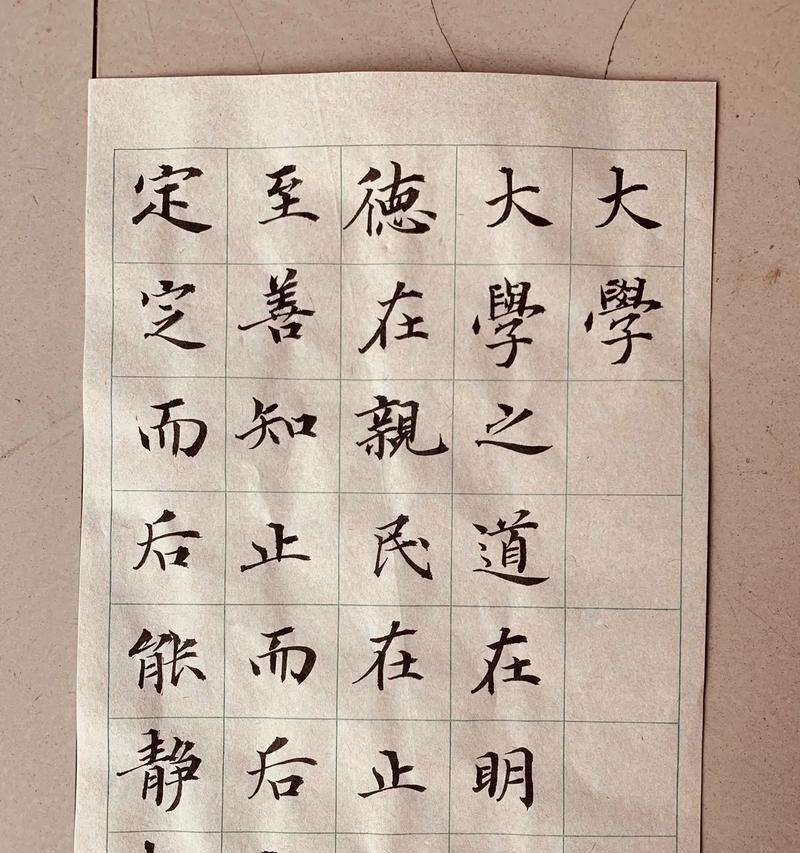 大學
大學之道在明
德在親民在止
至善知止而后
定定而后能静